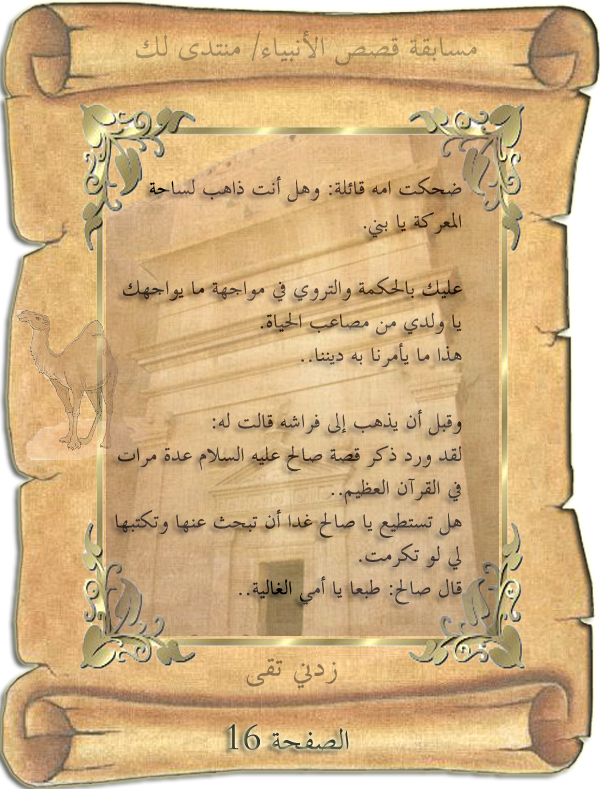 مسابقة قصص الأنبياء/ منتدى لك
ضحكت امه قائلة: وهل أنت ذاهب لساحة
المعركة يا بني.
عليك بالحكمة والتروي في مواجهة ما يواجهك
يا ولدي من مصاعب الحياة.
هذا ما يأمرنا به ديننا..
وقبل أن يذهب إلى فراشه قالت له:
لقد ورد ذكر قصة صالح عليه السلام عدة مرات
في القرآن العظيم..
هل تستطيع يا صالح غدا أن تبحث عنها وتكتبها
لي لو تكرمت.
قال صالح: طبعا يا أمي الغالية..
زدني تقى
الصفحة 16